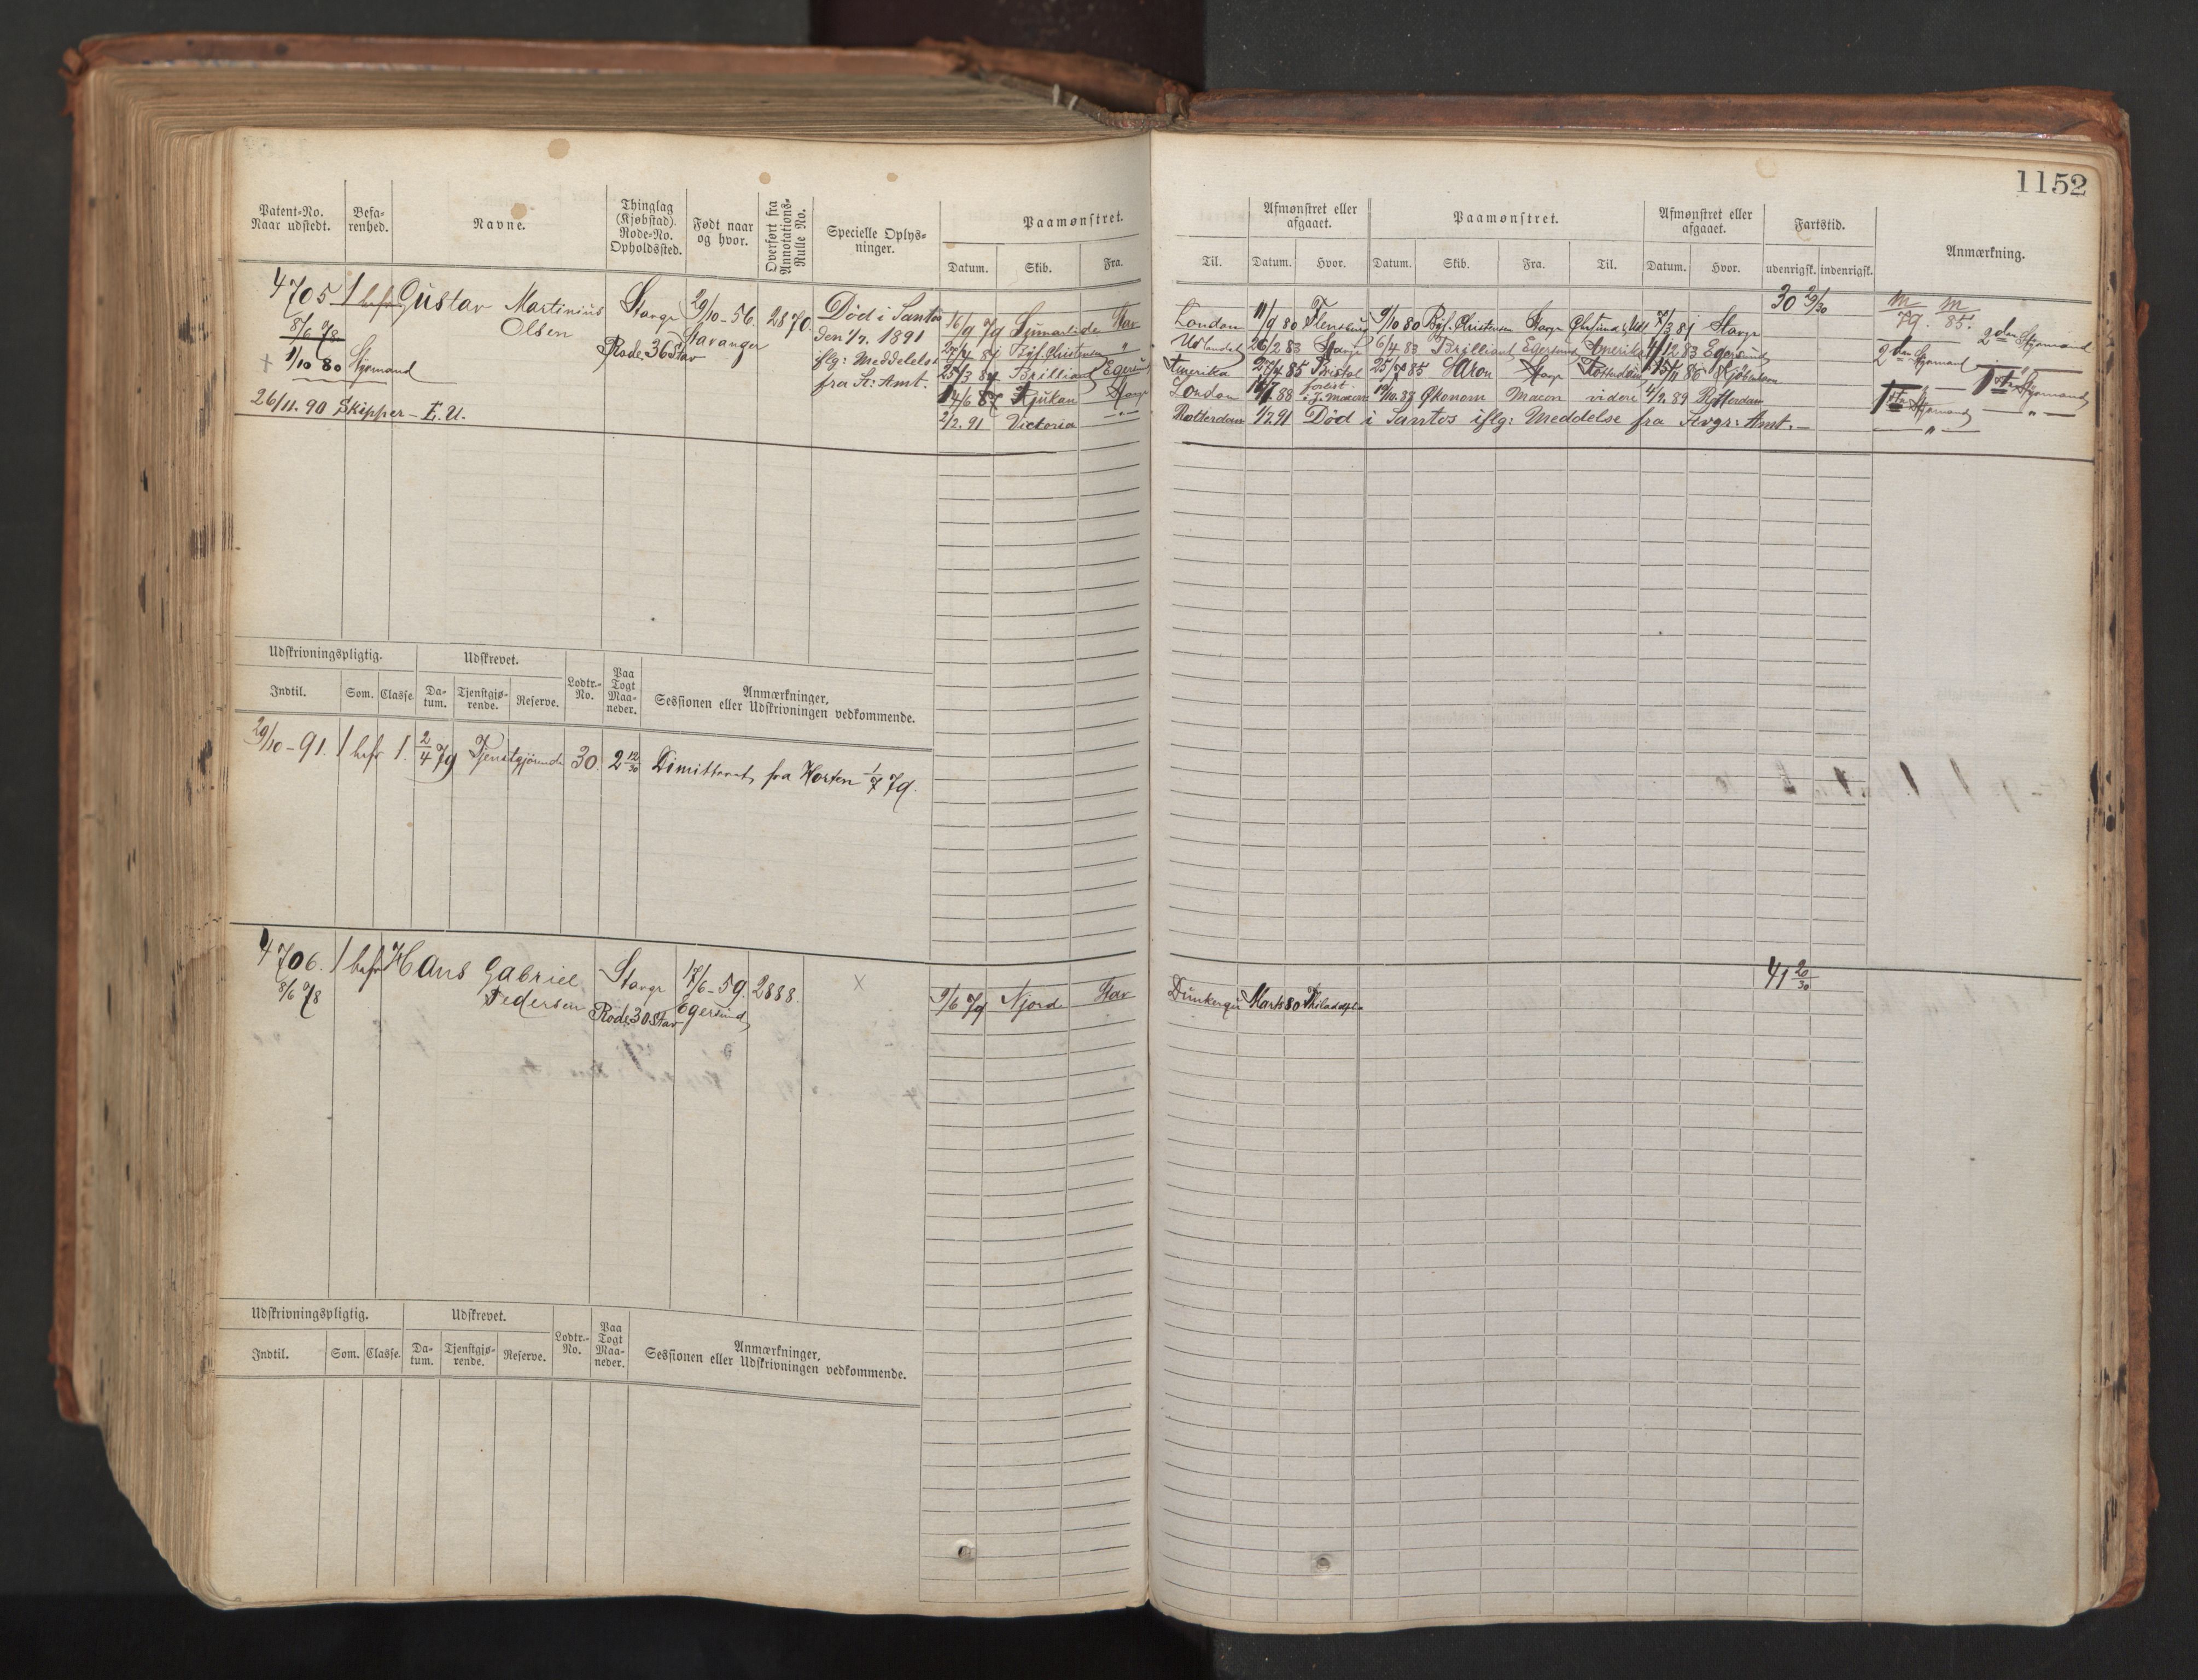 1152
Patent-No. Naar udstedt.
Befarenhed.
Navne.
Thinglag (Kjøbstad). Rode-No. Opholdssted.
Født naar og hvor.
Overført fra Annotations-Rulle No.
Specielle Oplysninger.
Paamønstret.
Datum. Skib. Fra.
Til.
Afmønstret eller afgaaet.
Datum. Hvor.
Paamønstret.
Datum. Skib. Fra. Til.
Afmønstret eller afgaaet.
Datum. Hvor.
Fartstid.
udenrigsk. indenrigsk.
Anmærkning.
4705 1 bef Gustav Martinius Olsen Stavgr 29/10-56. 2870. Død i Santos
8/6 78 Rode 36 Stav Stavanger den 1/7. 1891
1/10 80 Styrmand iflg: Meddelelse
fra St: Amt.
26/11. 90 Skipper - E. U.
16/9 79 Stav London 11/9 80 Flensburg 9/10 80 Bgf. Christensen Stavgr 7/3 81 Stavgr 30 29/30
Bgf. Christensen " Udlandet 26/2 83 Stavgr 6/4 83 Brilliant Egersund Amerika 4/12 83 Egersund
25/3 84 Brilliant Egersund Amerika 27/4 85 Bristol 25/7 85 Aron Stavgr
14/6 87 Rjukan Stavgr London 88 Økonom Macon videre 4/2. 89 Rotterdam
2/2. 91 Victoria " Rotterdam 1/7. 91 Død i Santos iflg: Meddelse fra Stvgr: Amt.-
m/79. m/85.
2den Styrmand
2den Styrmand
1ste Styrmand
1ste Styrmand
Udskrivningspligtig.
Indtil. Som. Classe.
Udskrevet.
Datum. Tjenstgjørende. Reserve.
Lodtr.-No.
Paa Togt Maaneder.
Anmærkninger, Sessionen eller Udskrivningen vedkommende.
29/10-91. 1 befr 1. 2/4 79 Tjenstgjørende 30. 2 12/30 Dimitteret fra Horten 1/7 79.
4706. 1 befr Hans Gabriel Pedersen Stavgr 17/6-59. 2888. X
8/6 78 Rode 30 Stav Egersund
9/6 79 Njord Stav Marts 80 Philadelph 41 20/30
Udskrivningspligtig.
Indtil. Som. Classe.
Udskrevet.
Datum. Tjenstgjørende. Reserve.
Lodtr.-No.
Paa Togt Maaneder.
Anmærkninger, Sessionen eller Udskrivningen vedkommende.